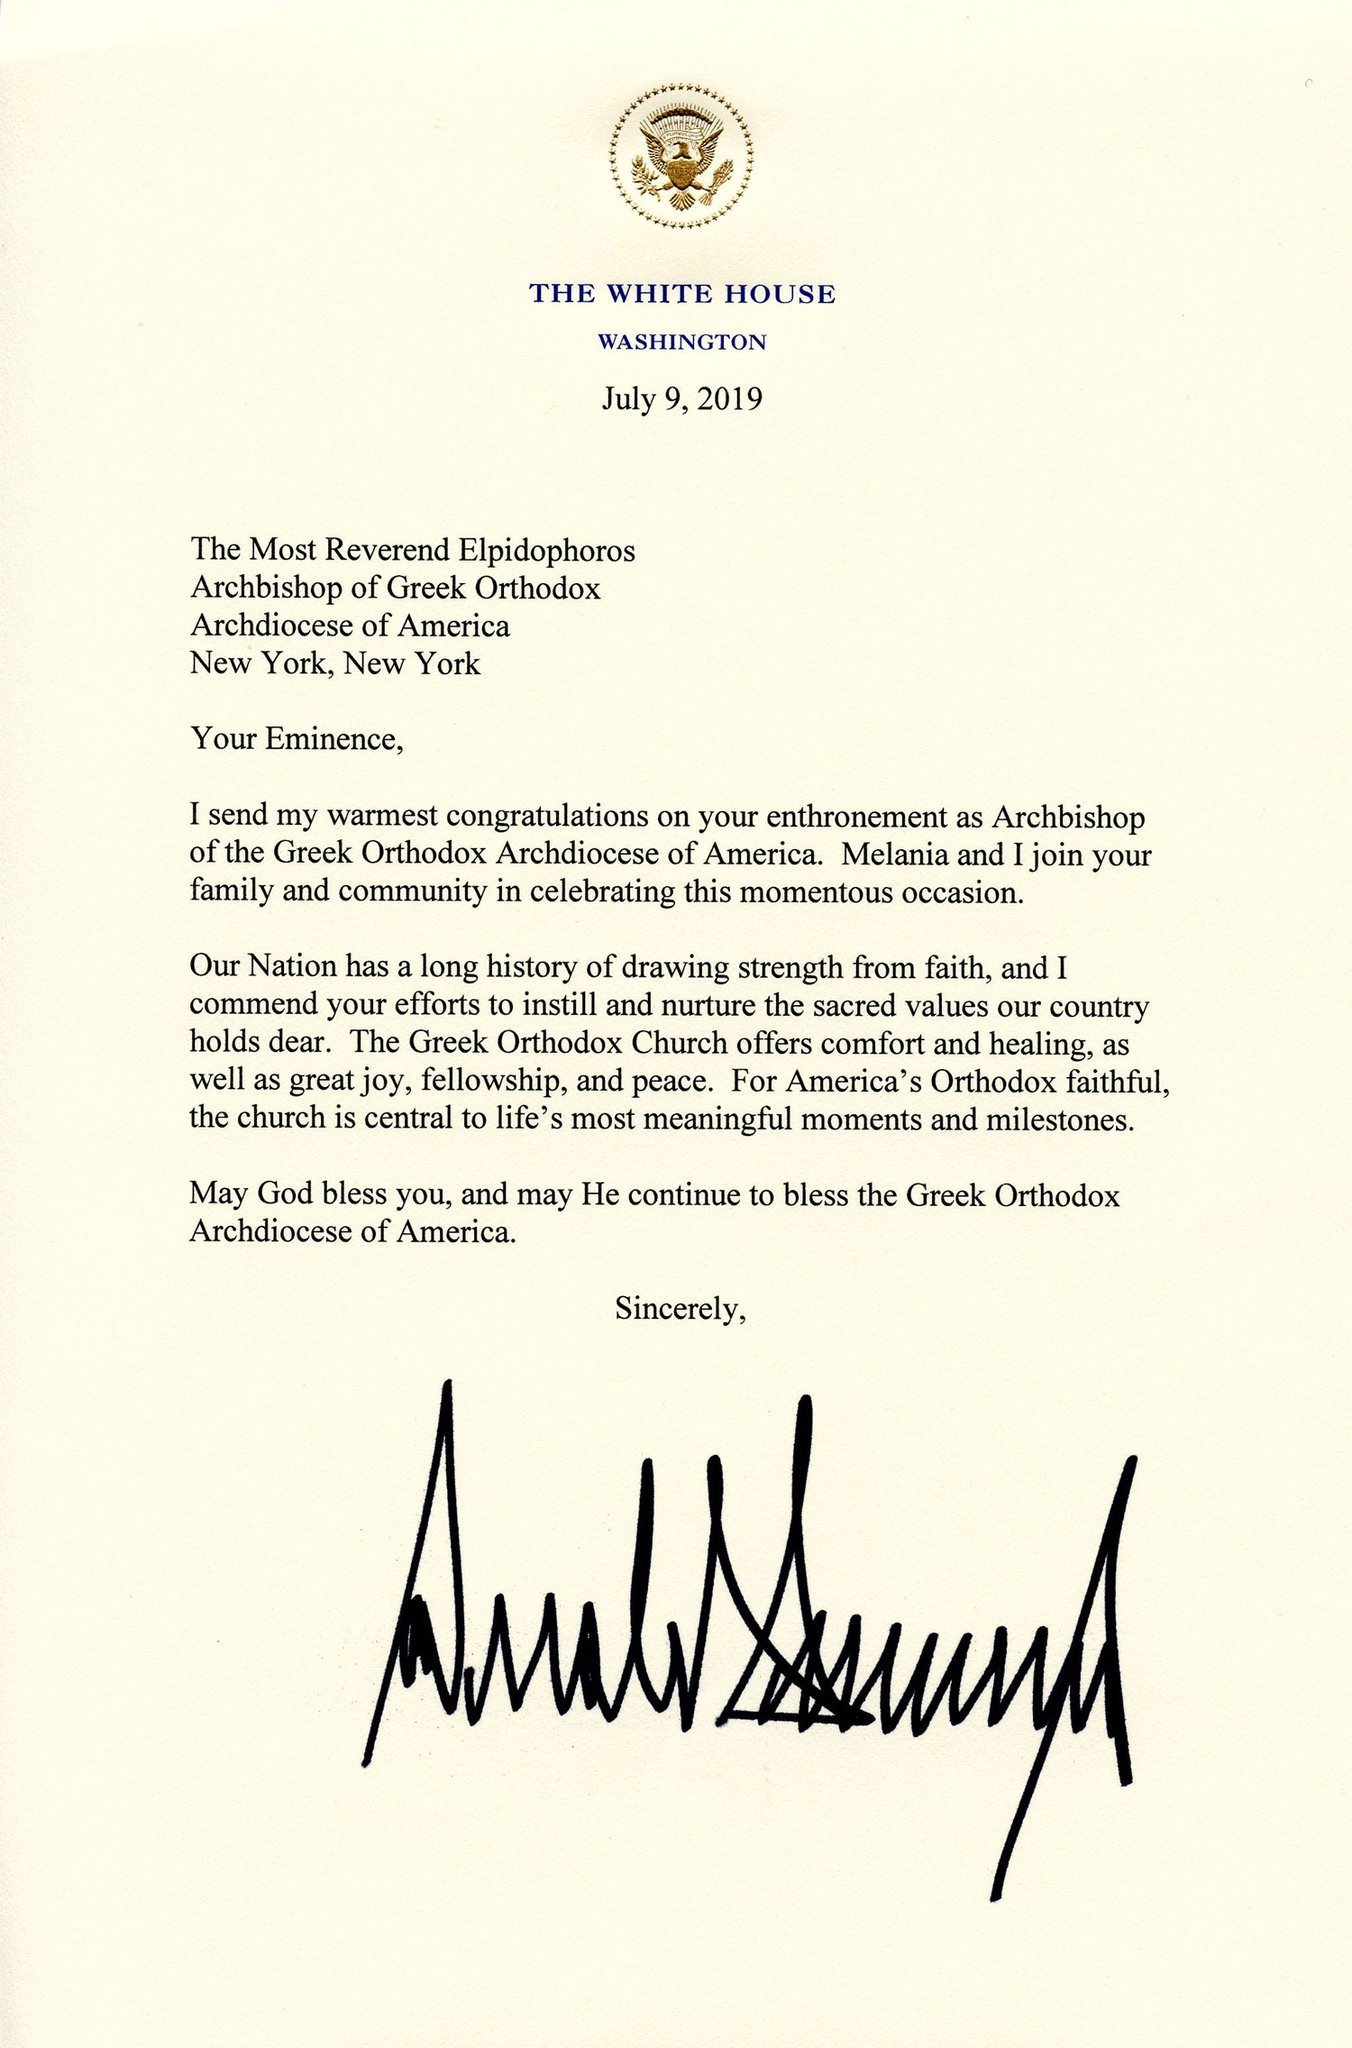 THE WHITE HOUSE
WASHINGTON
July 9, 2019
The Most Reverend Elpidophoros
Archbishop of Greek Orthodox
Archdiocese of America
New York, New York
Your Eminence,
I send my warmest congratulations on your enthronement as Archbishop
of the Greek Orthodox Archdiocese of America.  Melania and I join your
family and community in celebrating this momentous occasion.
Our Nation has a long history of drawing strength from faith, and I
commend your efforts to instill and nurture the sacred values our country
holds dear.  The Greek Orthodox Church offers comfort and healing, as
well as great joy, fellowship, and peace.  For America’s Orthodox faithful,
the church is central to life’s most meaningful moments and milestones.
May God bless you, and may He continue to bless the Greek Orthodox
Archdiocese of America.
Sincerely,